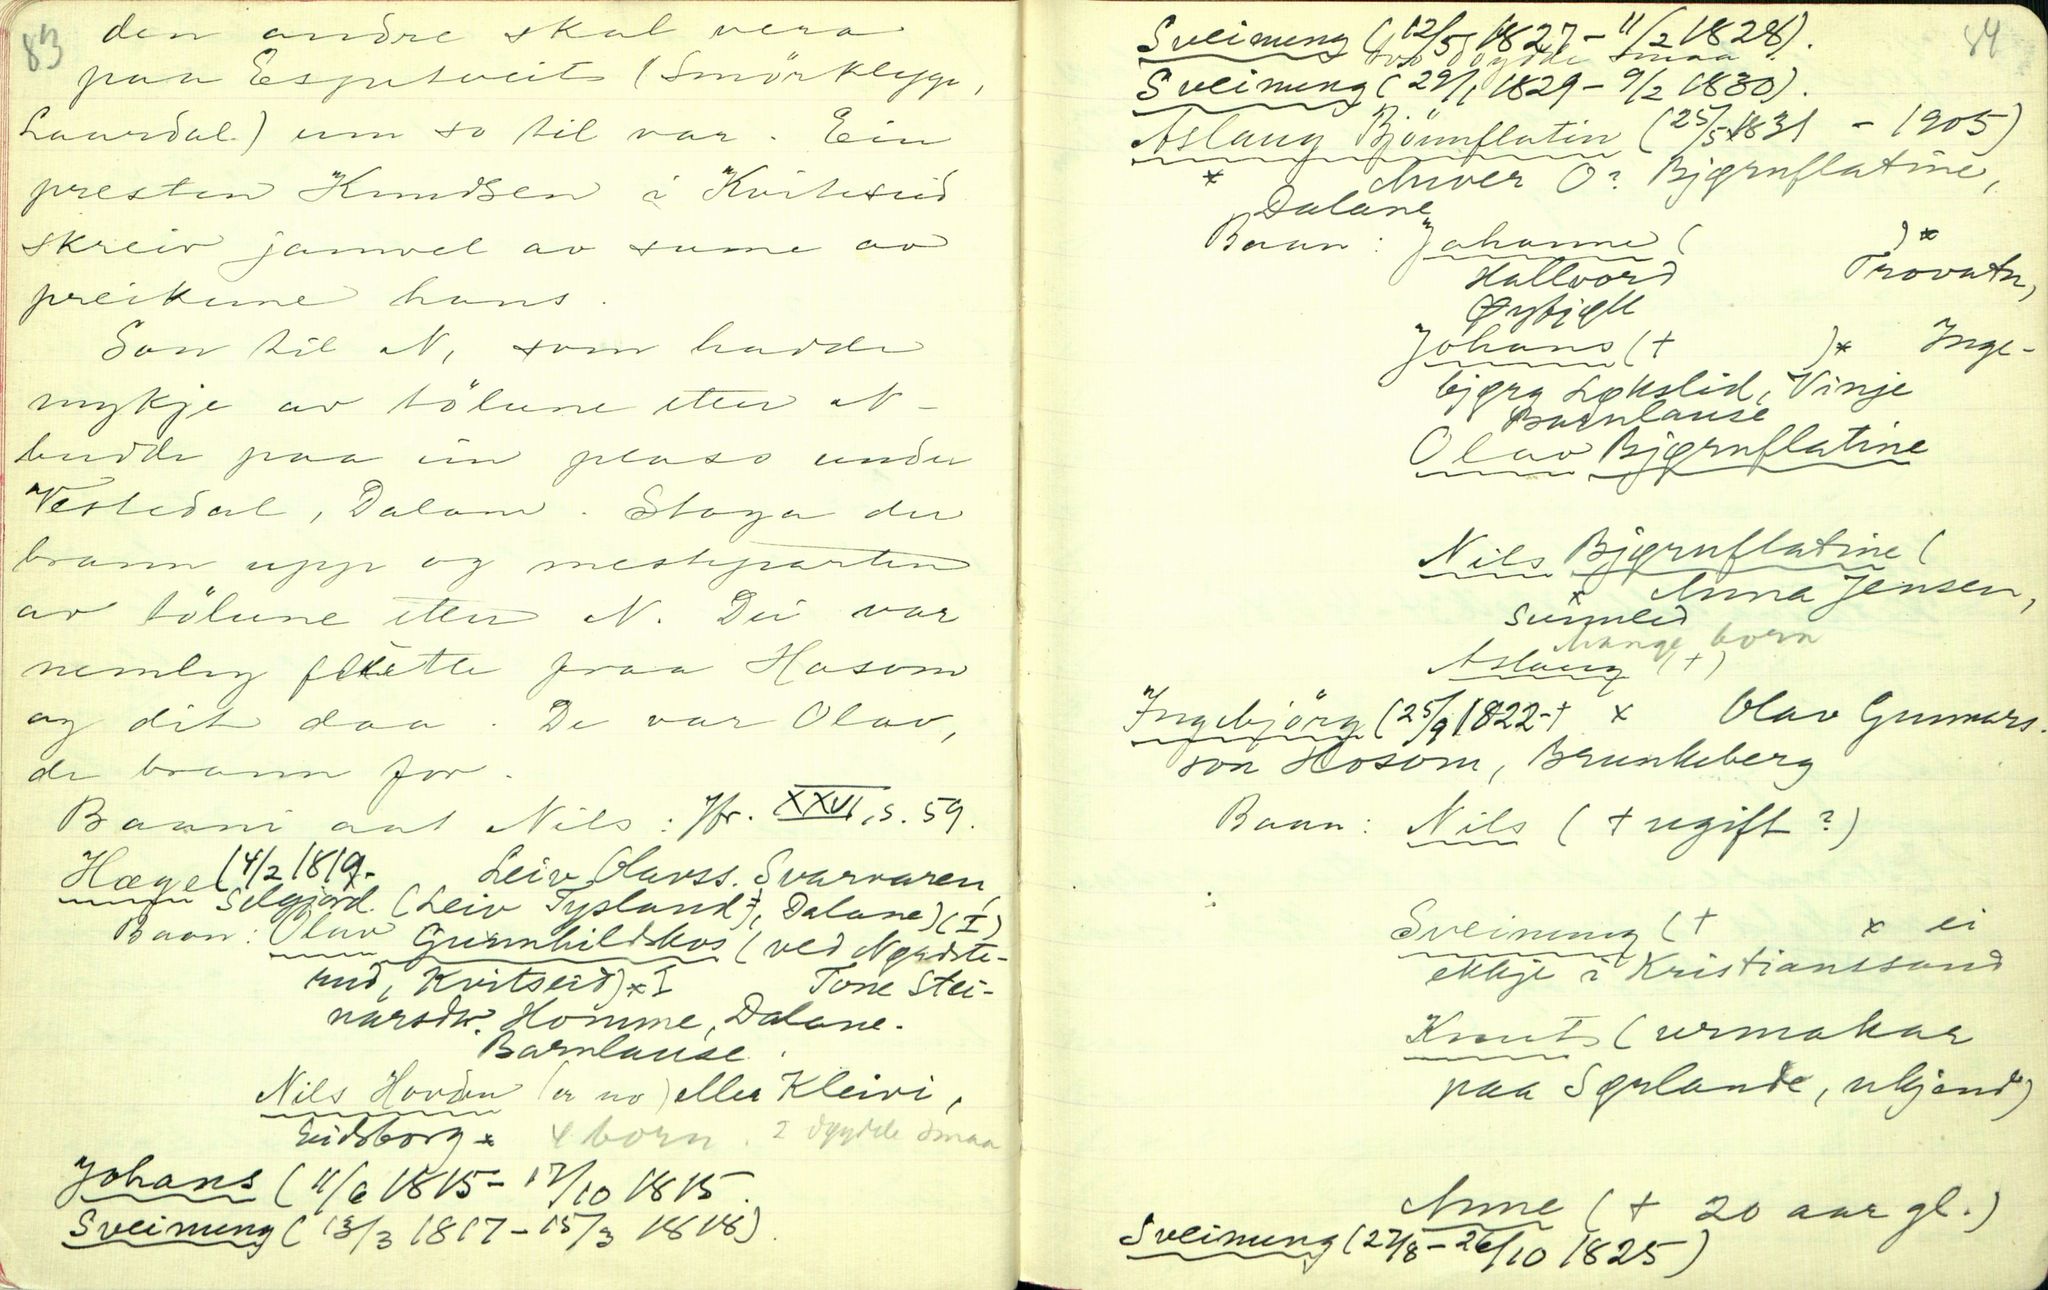 83
den andre skal vera
paa Espetveit (Smörklepp,
Laardal) um so til var. Ein
presten Knudsen i Kviteseid
skreiv jamvel av sume av
preikune hans.
Son til N, som hadde
mykje av tölune etter N -
budde paa ein plass under
Vestedal, Dalane. Stoga der
brann upp og mesteparten
av tölune etter N. Dei var
nemleg flutte fraa Hosom
og dit daa. De var Olav,
de brann for.
Baani aat Nils: Jfr. XXVI, s. 59.
Hæge (4/2 1819- Leiv Olavss. Svarvaren,
Selgjord. (Leiv Fysland, Dalane) (I)
Baan: Olav Gunnhildskos (ved Nordste-
rud, Kvitseid) x I Tone Stei-
narsdtr. Homme, Dalane.
Barnlause.
Nils Hovden (er no) eller Kleivi,
Eidsborg x 4 born. 2 døydde smaa
Johans (11/6 1815 - 17/10 1815.
Sveinung (13/3 1817 - 15/3 1818).
84
Sveinung (12/5 1827 - 11/2 1828).
døydde smaa.
Sveinung (29/1 1829 - 9/2 1830).
Aslaug Bjönnflatin (25/5 1831 - 1905)
x Anver O? Bjørnflatine,
Dalane
Baan: Johanne ( ) x
Hallvord Trovatn,
Øyfjell
Johans (+ ) x Inge-
bjørg Lokslid, Vinje
Barnlause
Olav Bjørnflatine
Nils Bjørnflatine (
x Anna Jensen,
mange born
Aslaug (+)
Ingebjörg (25/9 1822 - + x Olav Gunnars-
son Hosom, Brunkeberg
Baan: Nils (+ ugift?)
Sveinung (+ x ei
ekkje i Kristianssand
Knut (urmakar
paa Sørlande, ukjend)
Anne (+ 20 aar gl.)
Sveinung (27/8 - 26/10 1825)